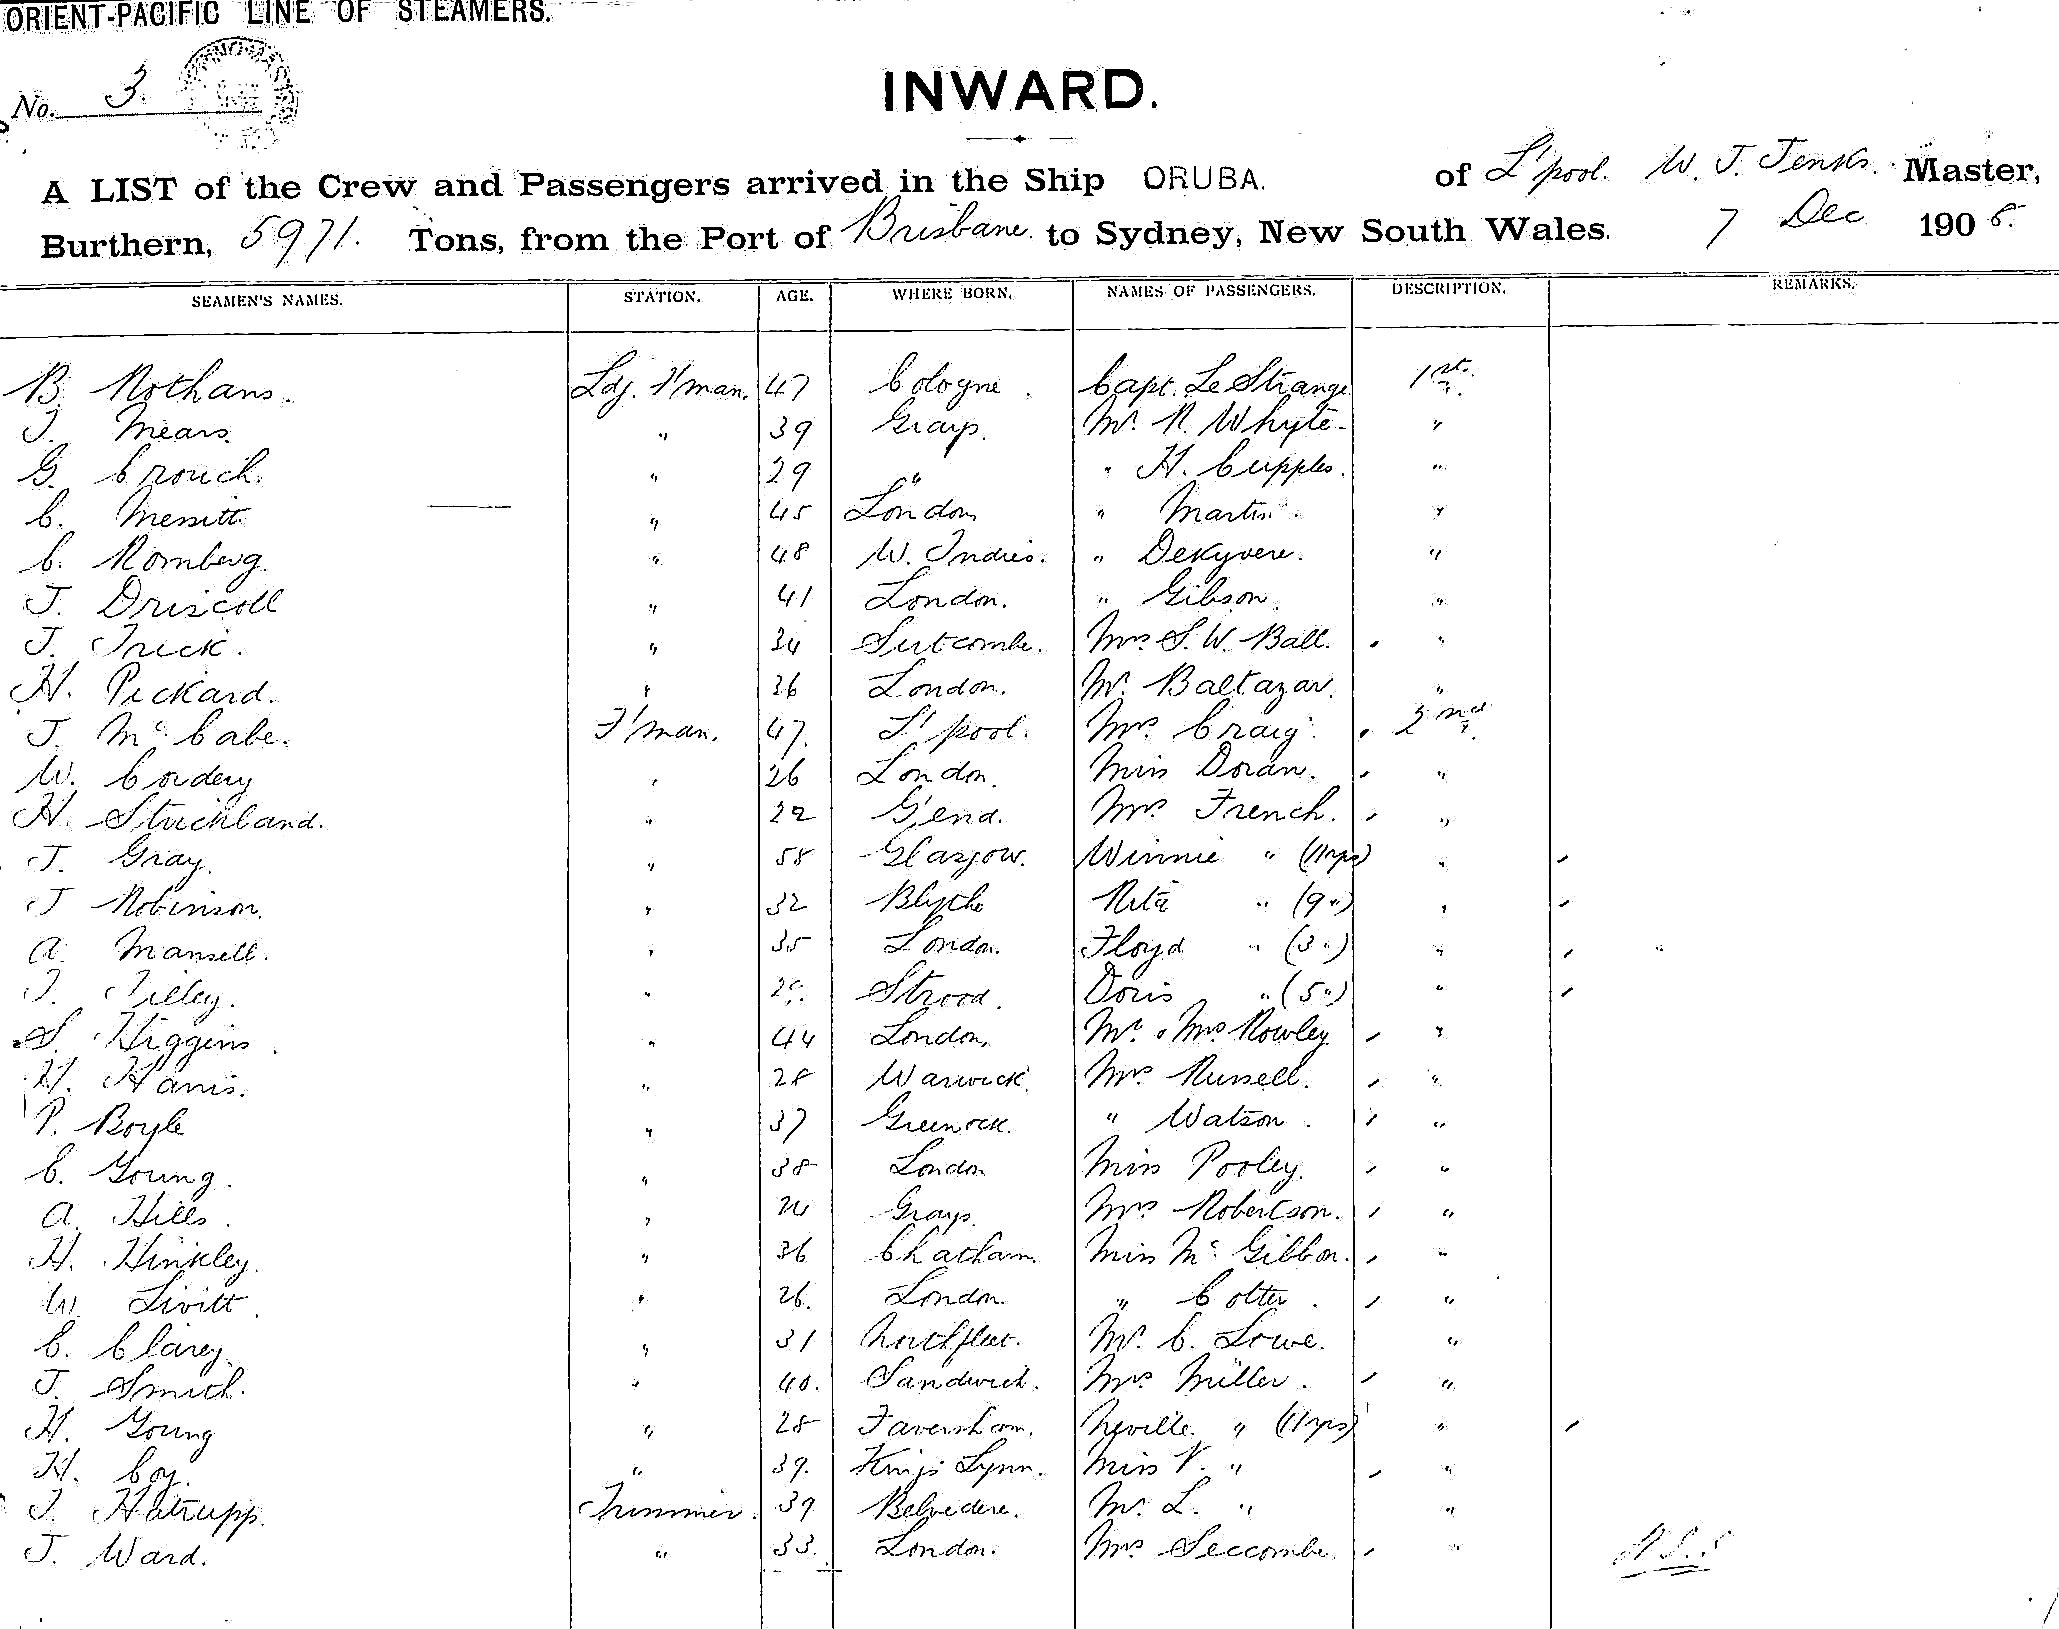 ORIENT-PACIFIC LINE OF STEAMERS.
No. 3.
INWARD.
A LIST of the Crew and Passengers arrived in the Ship ORUBA. of L'pool. W. J. Jenks. Master,
Burthern, 5971. Tons, from the Port of Brisbane. to Sydney, New South Wales. 7 Dec 190
SEAMEN'S NAMES. STATION. AGE. WHERE BORN. NAMES OF PASSENGERS. DESCRIPTION. REMARKS.
B. Rothans. Ldg. F'man. 47 Cologne. Capt. Le Strange 1st.
J. Mears. " 39 Grays. Mr. R. Whyte. "
G. Crouch. " 29 " " H. Cupples. "
C. Merritt " 45 London " Martin "
C. Romberg. " 48 W. Indies. " Dekyvere. "
J. Driscoll " 41 London. " Gibson. "
J. Trick. " 34 Sutcombe. Mrs. S. W. Ball. "
H. Pickard. " 36 London. Mr. Baltazar. "
J. McCabe. F'man. 47. L'pool. Mrs. Craig. 2nd.
W. Cordery " 26 London. Miss Doran. "
H. Strickland. " 22 G'end. Mrs. French. "
J. Gray. " 58 Glasgow. Winnie " (11 yrs) "
J Robinson. " 32 Blythe Rita " (9 ") "
A. Mansell. " 35 London. Floyd " (3 ") "
J. Tilley. " Strood. Doris " (5 ") "
S. Higgins. " 44 London. Mr. & Mrs Rowley "
H. Harris. " 28 Warwick. Mrs. Russell. "
P. Boyle " 37 Greenock. " Watson. "
C. Young. " 38 London Miss Pooley. "
A. Hills. " 24 Grays. Mrs. Robertson. "
H. Hinkley. " 36 Chatham. Miss McGibbon. "
W. Livitt. " 26. London. " Cotter. "
C. Clarey. " 31 Northfleet. Mr. C. Lowe. "
J. Smith. " 40. Sandwich. Mrs. Miller. "
H. Young " 28 Faversham. Neville " (11 yrs) "
H. Coy. " 39. Kings Lynn. Miss V. " "
J. Hatrupp. Trimmer. 39 Belvedere. Mr. L. " "
J. Ward. " 33. London. Mrs. Seccombe. "